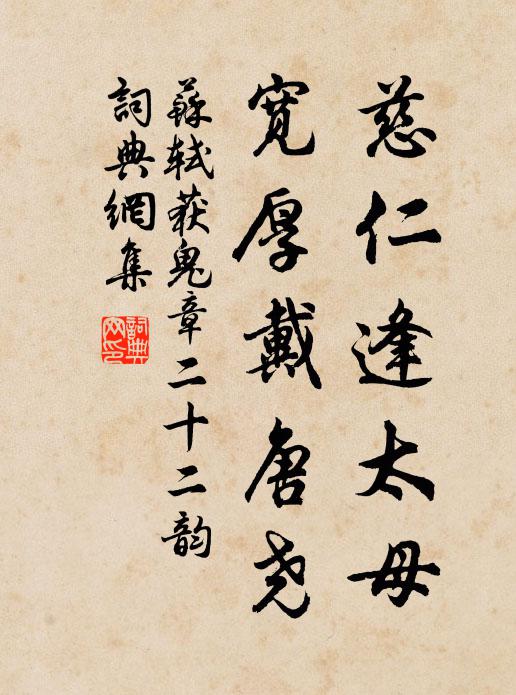 慈仁逢太母
寬厚戴唐尧
蘇軾获鬼章二十二韵
詞典網集
詞典網印